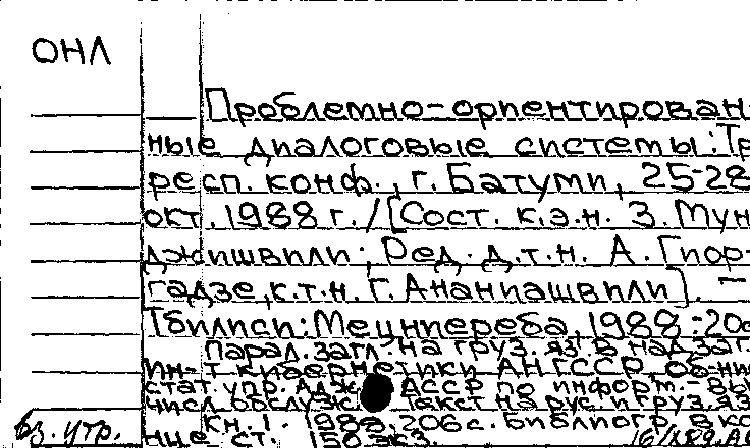 ОНЛ
Проблемно-орпентирован-
ные диалоговые системы: Тр.
респ. конф., г. Батуми, 25-28
окт. 1988 г. / [Сост. к.э.н. З. Мун
джишвили; Ред. д.т.н. А. Гиор-
гадзе, к.т.н. Г. Ананиашвили]. —
Тбилиси: Мецниереба, 1988 -
Парал. загл. на груз. яз. В надзаг.
Ин-т кибернетики АН ГССР, Об-ние
стат. упр. АССР по информ.-вы
числ. обслуж. Текст на рус. и груз. яз.
Кн. 1. 1988, 206 с. Библиогр. в кон
це ст. 150 экз.